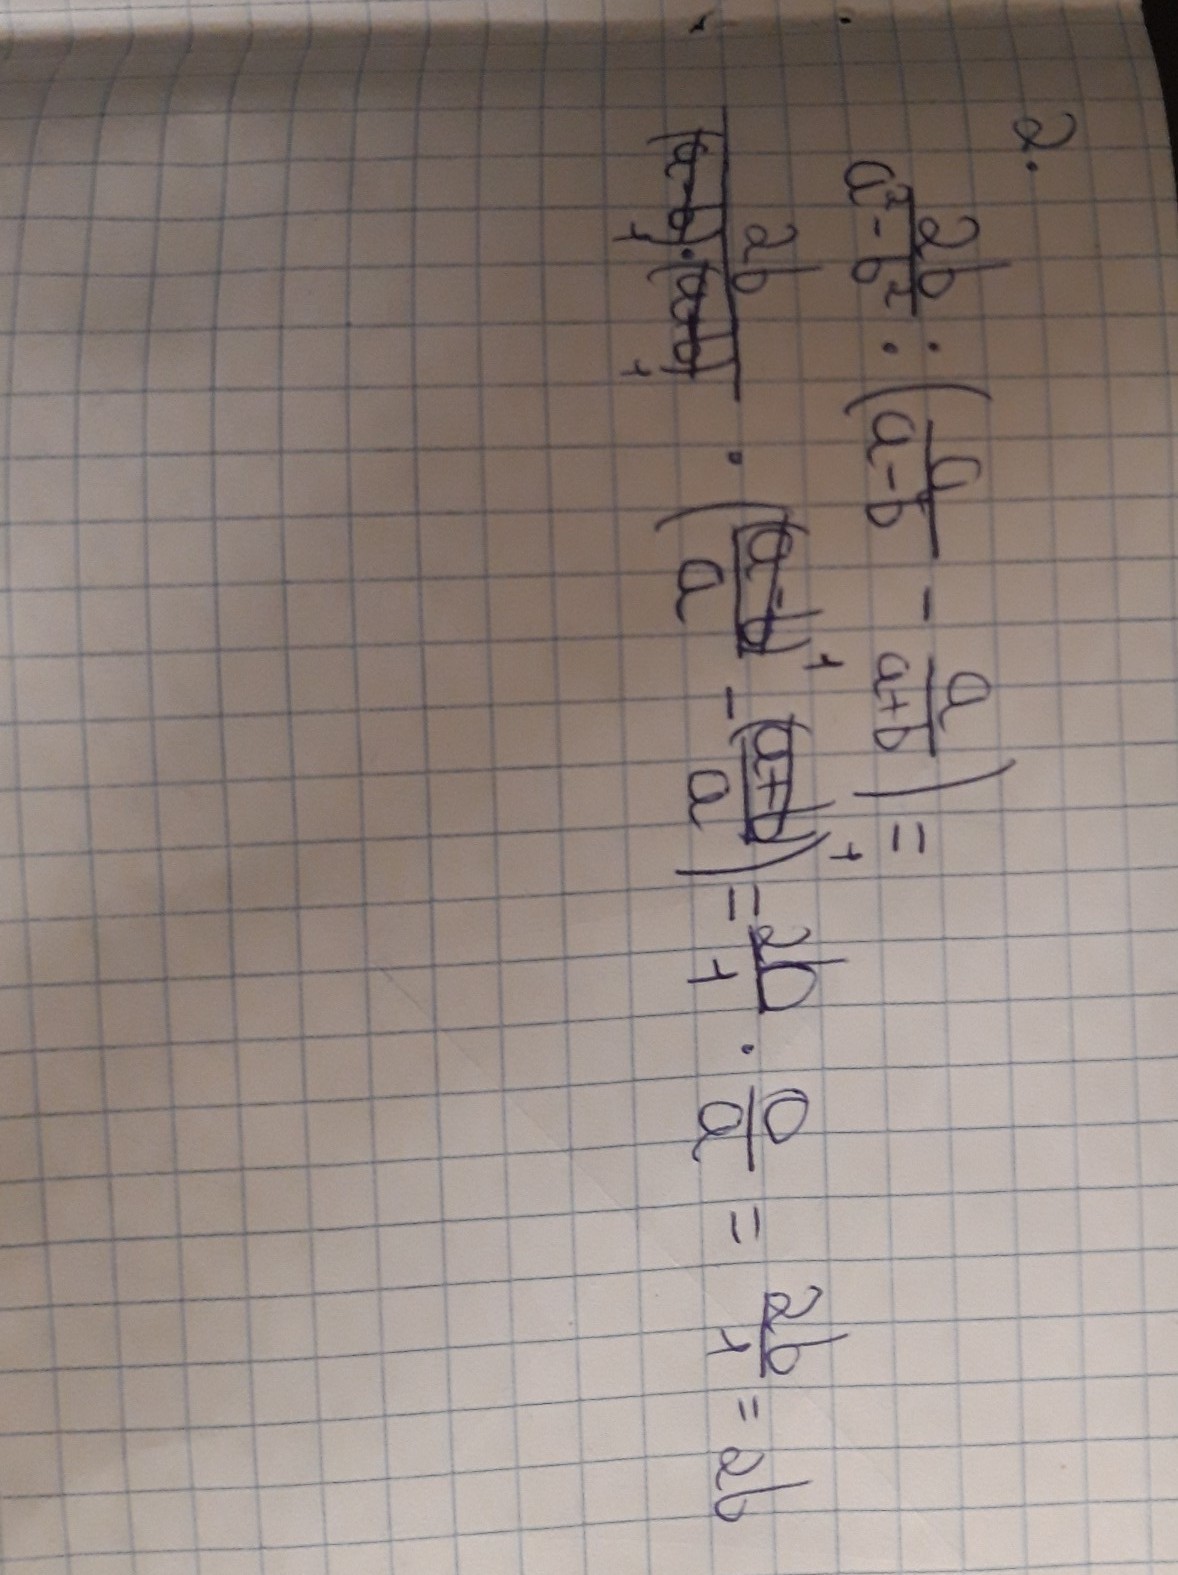 2.
2b/(a² - b²) : (a/(a-b) - a/(a+b)) =
2b/((a-b)·(a+b)) · ((a-b)¹/a - (a+b)¹/a) = 2b/1 · 0/a = 2b/1 = 2b
1 1